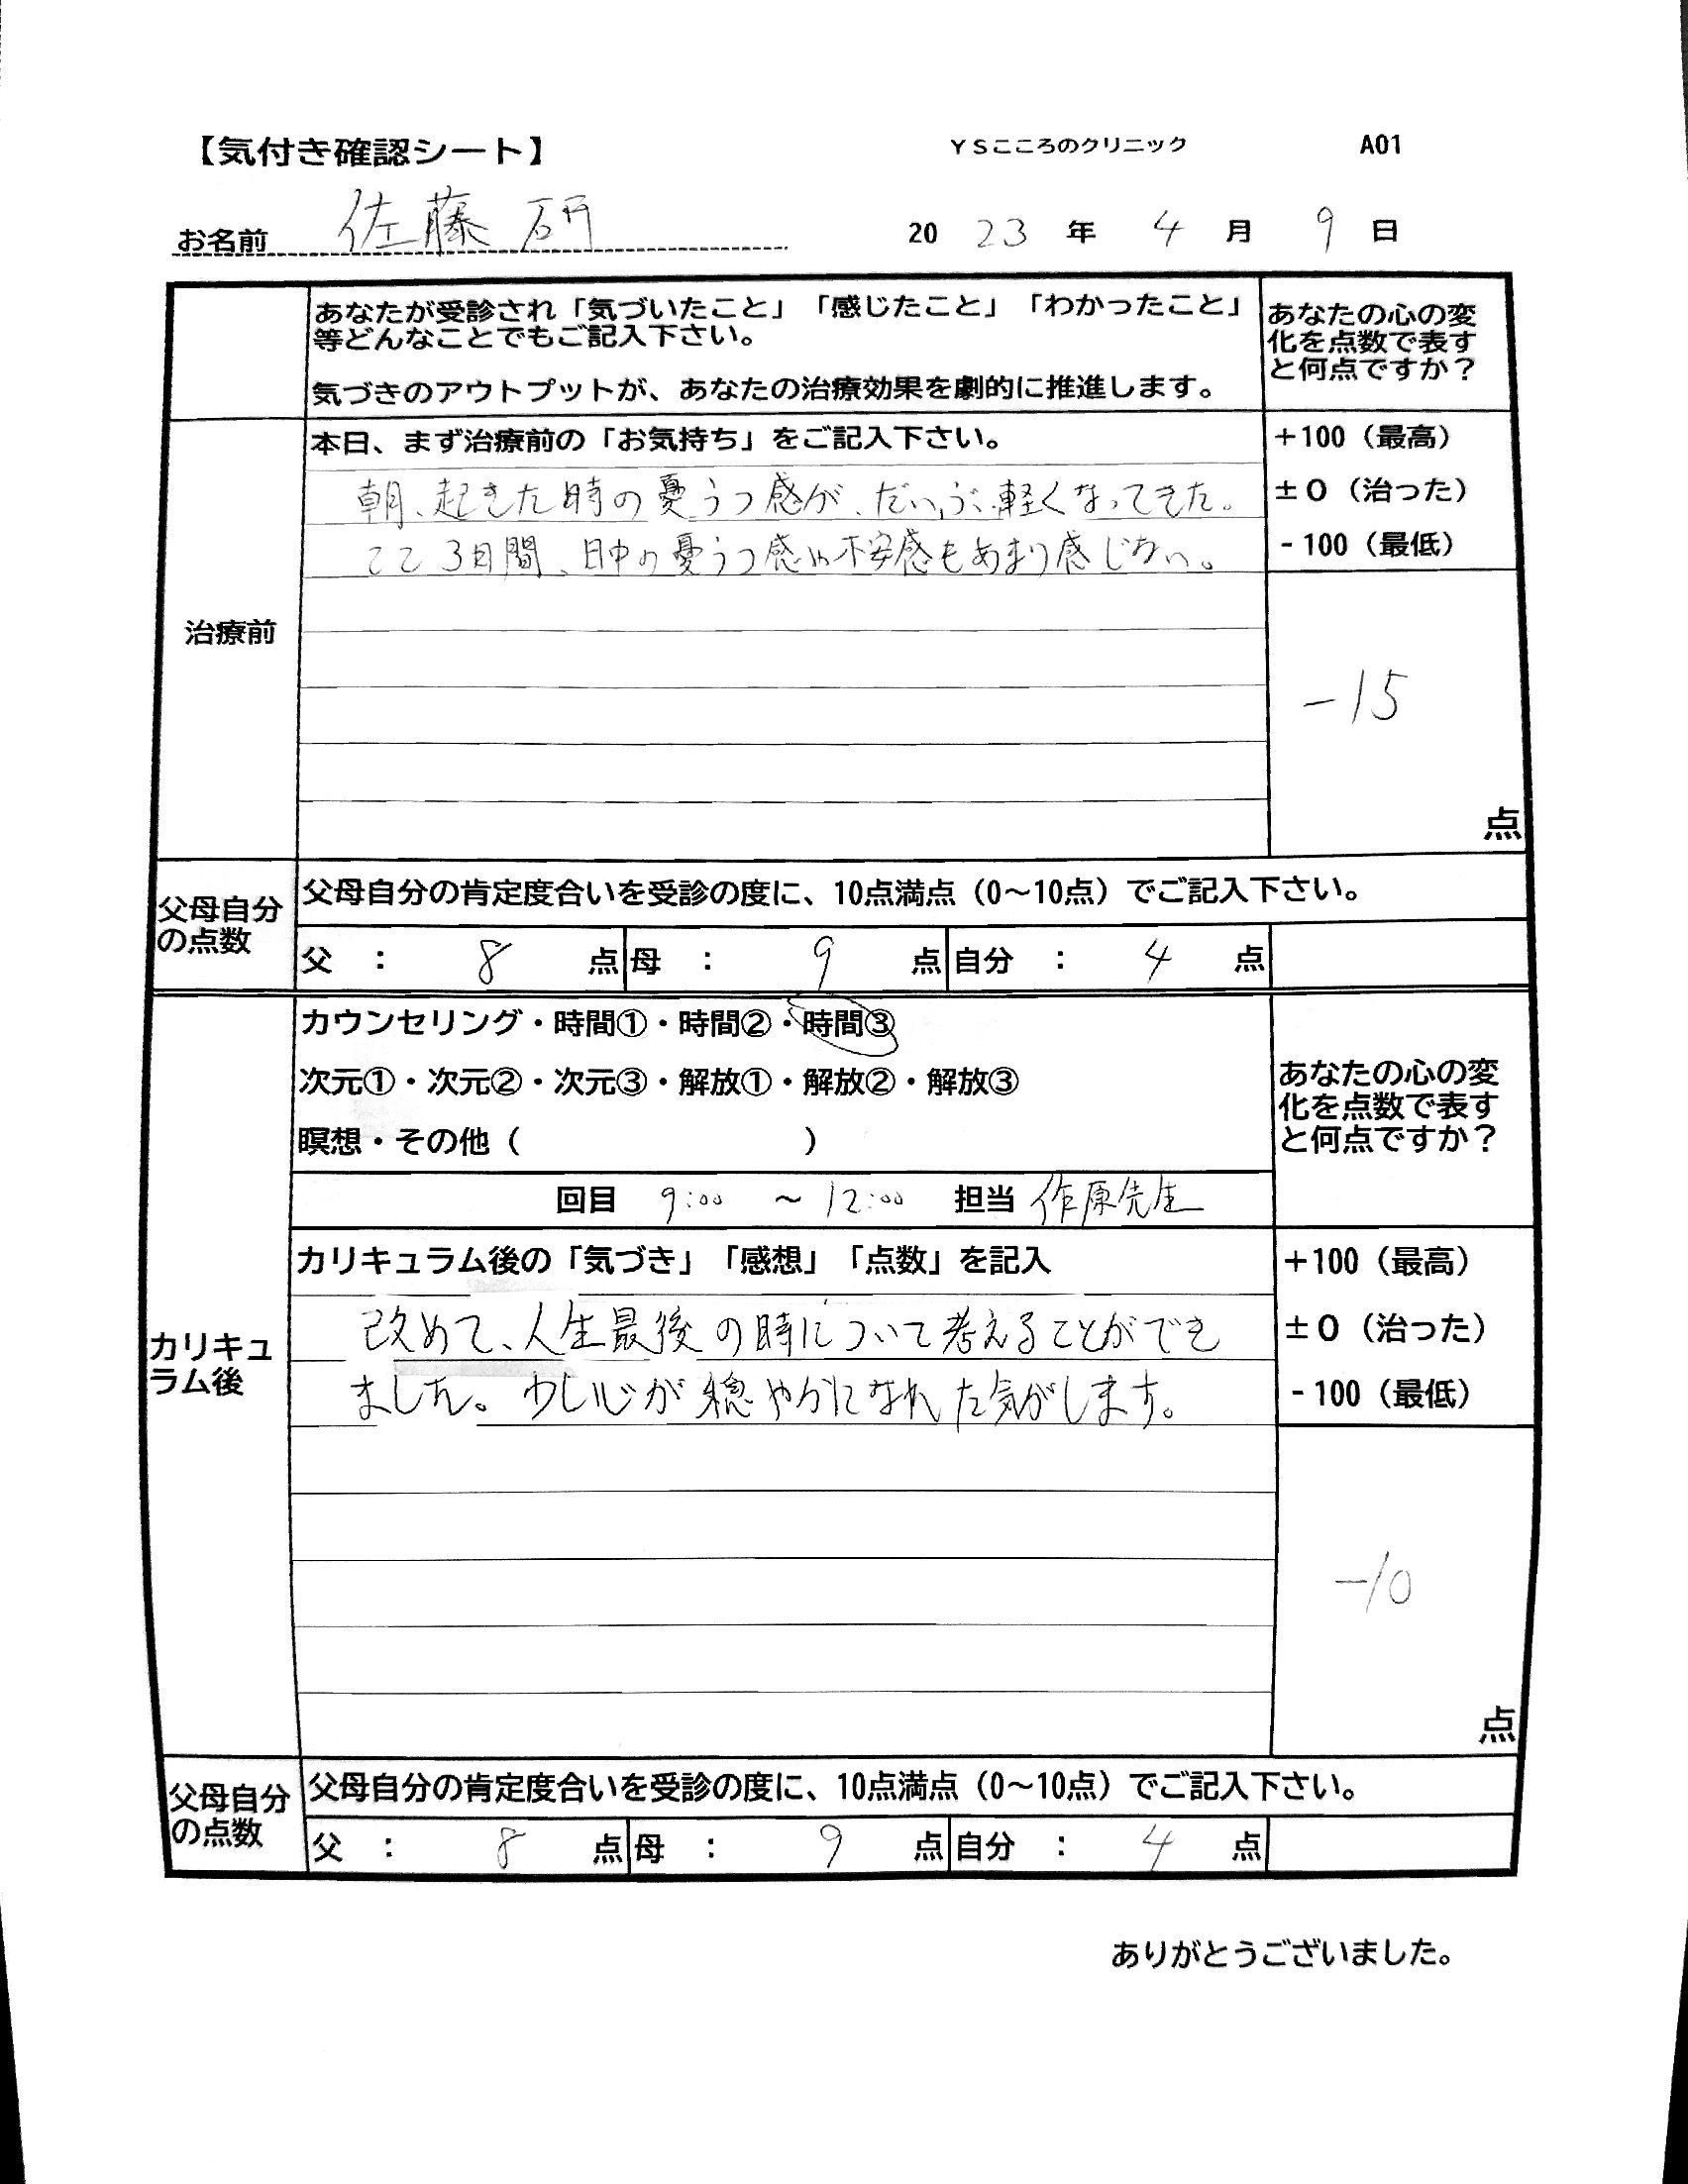 【気付き確認シート】 YSこころのクリニック A01
お名前 佐藤 研 20 23 年 4 月 9 日
あなたが受診され「気づいたこと」「感じたこと」「わかったこと」
等どんなことでもご記入下さい。
気づきのアウトプットが、あなたの治療効果を劇的に推進します。
あなたの心の変
化を点数で表す
と何点ですか？
治療前
本日、まず治療前の「お気持ち」をご記入下さい。
朝、起きた時の憂うつ感が、だいぶ、軽くなってきた。
ここ3日間、日中の憂うつ感や不安感もあまり感じない。
+100（最高）
±0（治った）
-100（最低）
-15
点
父母自分
の点数
父母自分の肯定度合いを受診の度に、10点満点（0～10点）でご記入下さい。
父 ： 8 点 母 ： 9 点 自分 ： 4 点
カリキュ
ラム後
カウンセリング・時間①・時間②・時間③
次元①・次元②・次元③・解放①・解放②・解放③
瞑想・その他（ ）
回目 9:00 ～ 12:00 担当 作原先生
あなたの心の変
化を点数で表す
と何点ですか？
カリキュラム後の「気づき」「感想」「点数」を記入
改めて、人生最後の時について考えることができ
ました。少し心が穏やかになれた気がします。
+100（最高）
±0（治った）
-100（最低）
-10
点
父母自分
の点数
父母自分の肯定度合いを受診の度に、10点満点（0～10点）でご記入下さい。
父 ： 8 点 母 ： 9 点 自分 ： 4 点
ありがとうございました。